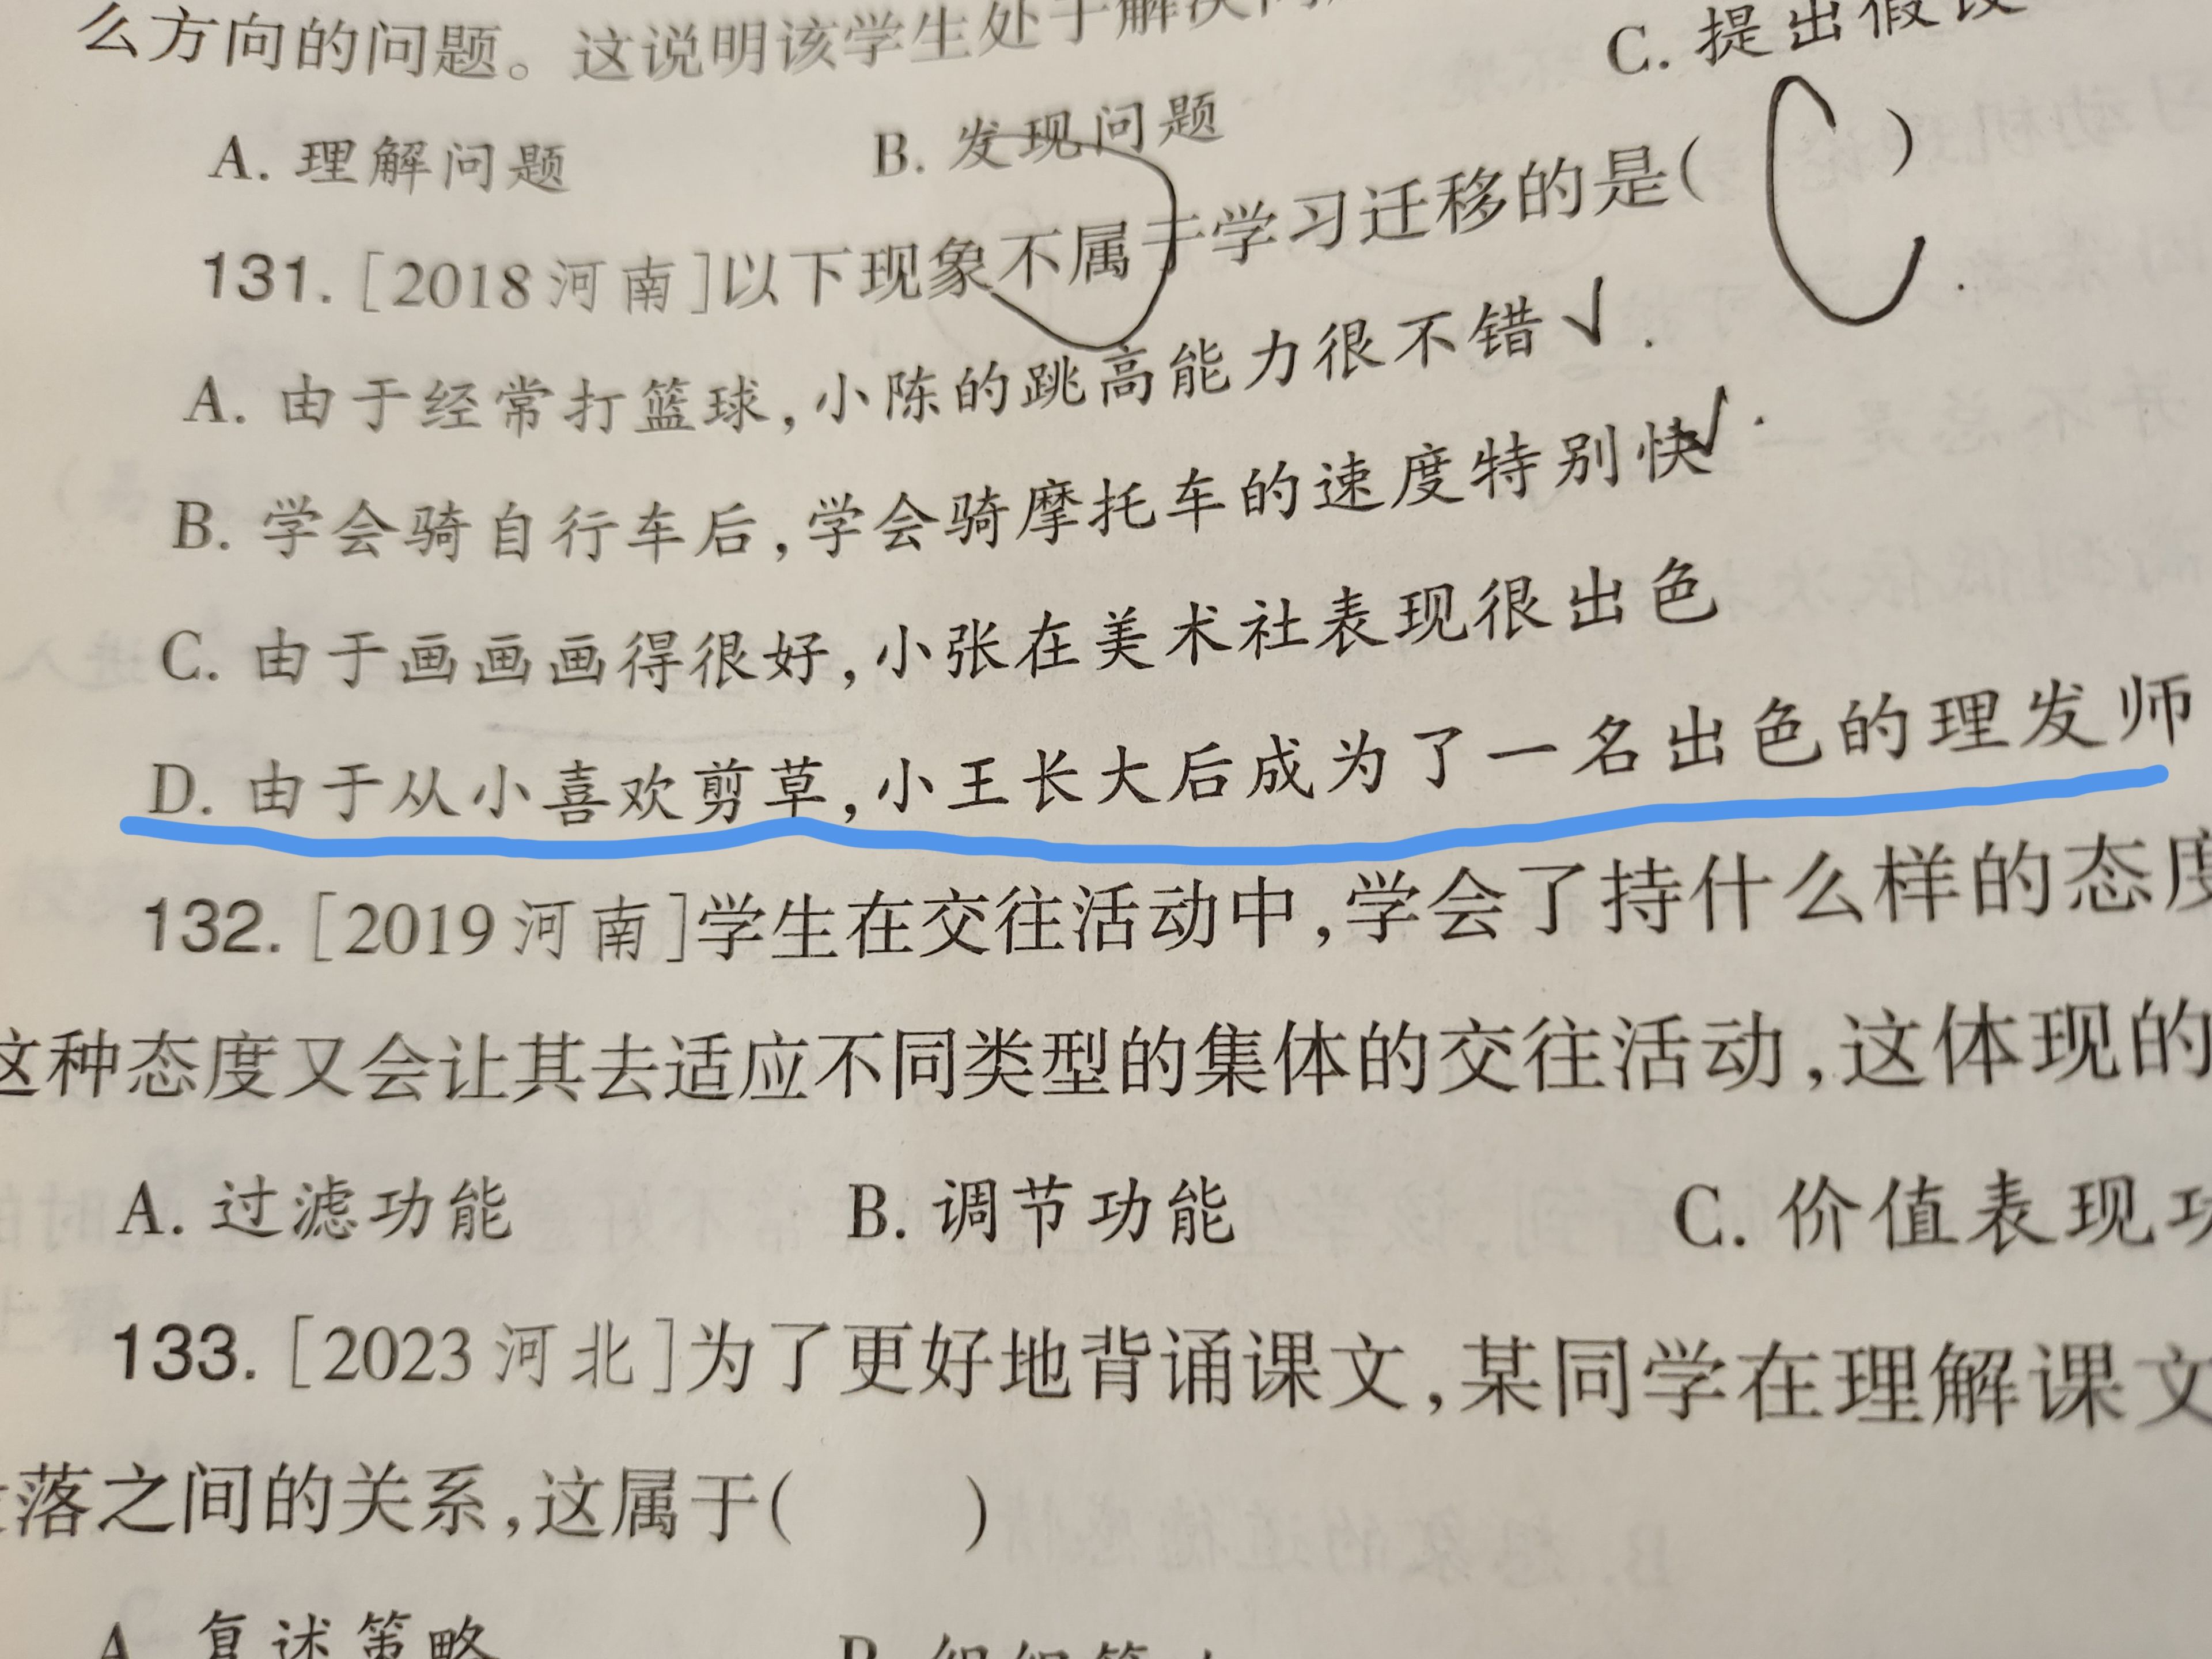 么方向的问题。这说明该学生处于解决问
A. 理解问题 B. 发现问题 C. 提出假设
131. [2018河南]以下现象不属于学习迁移的是( C )
A. 由于经常打篮球,小陈的跳高能力很不错 √
B. 学会骑自行车后,学会骑摩托车的速度特别快 √
C. 由于画画画得很好,小张在美术社表现很出色
D. 由于从小喜欢剪草,小王长大后成为了一名出色的理发师
132. [2019河南]学生在交往活动中,学会了持什么样的态度
这种态度又会让其去适应不同类型的集体的交往活动,这体现的
A. 过滤功能 B. 调节功能 C. 价值表现功
133. [2023河北]为了更好地背诵课文,某同学在理解课文
落之间的关系,这属于( )
A. 复述策略 B. 组织策略